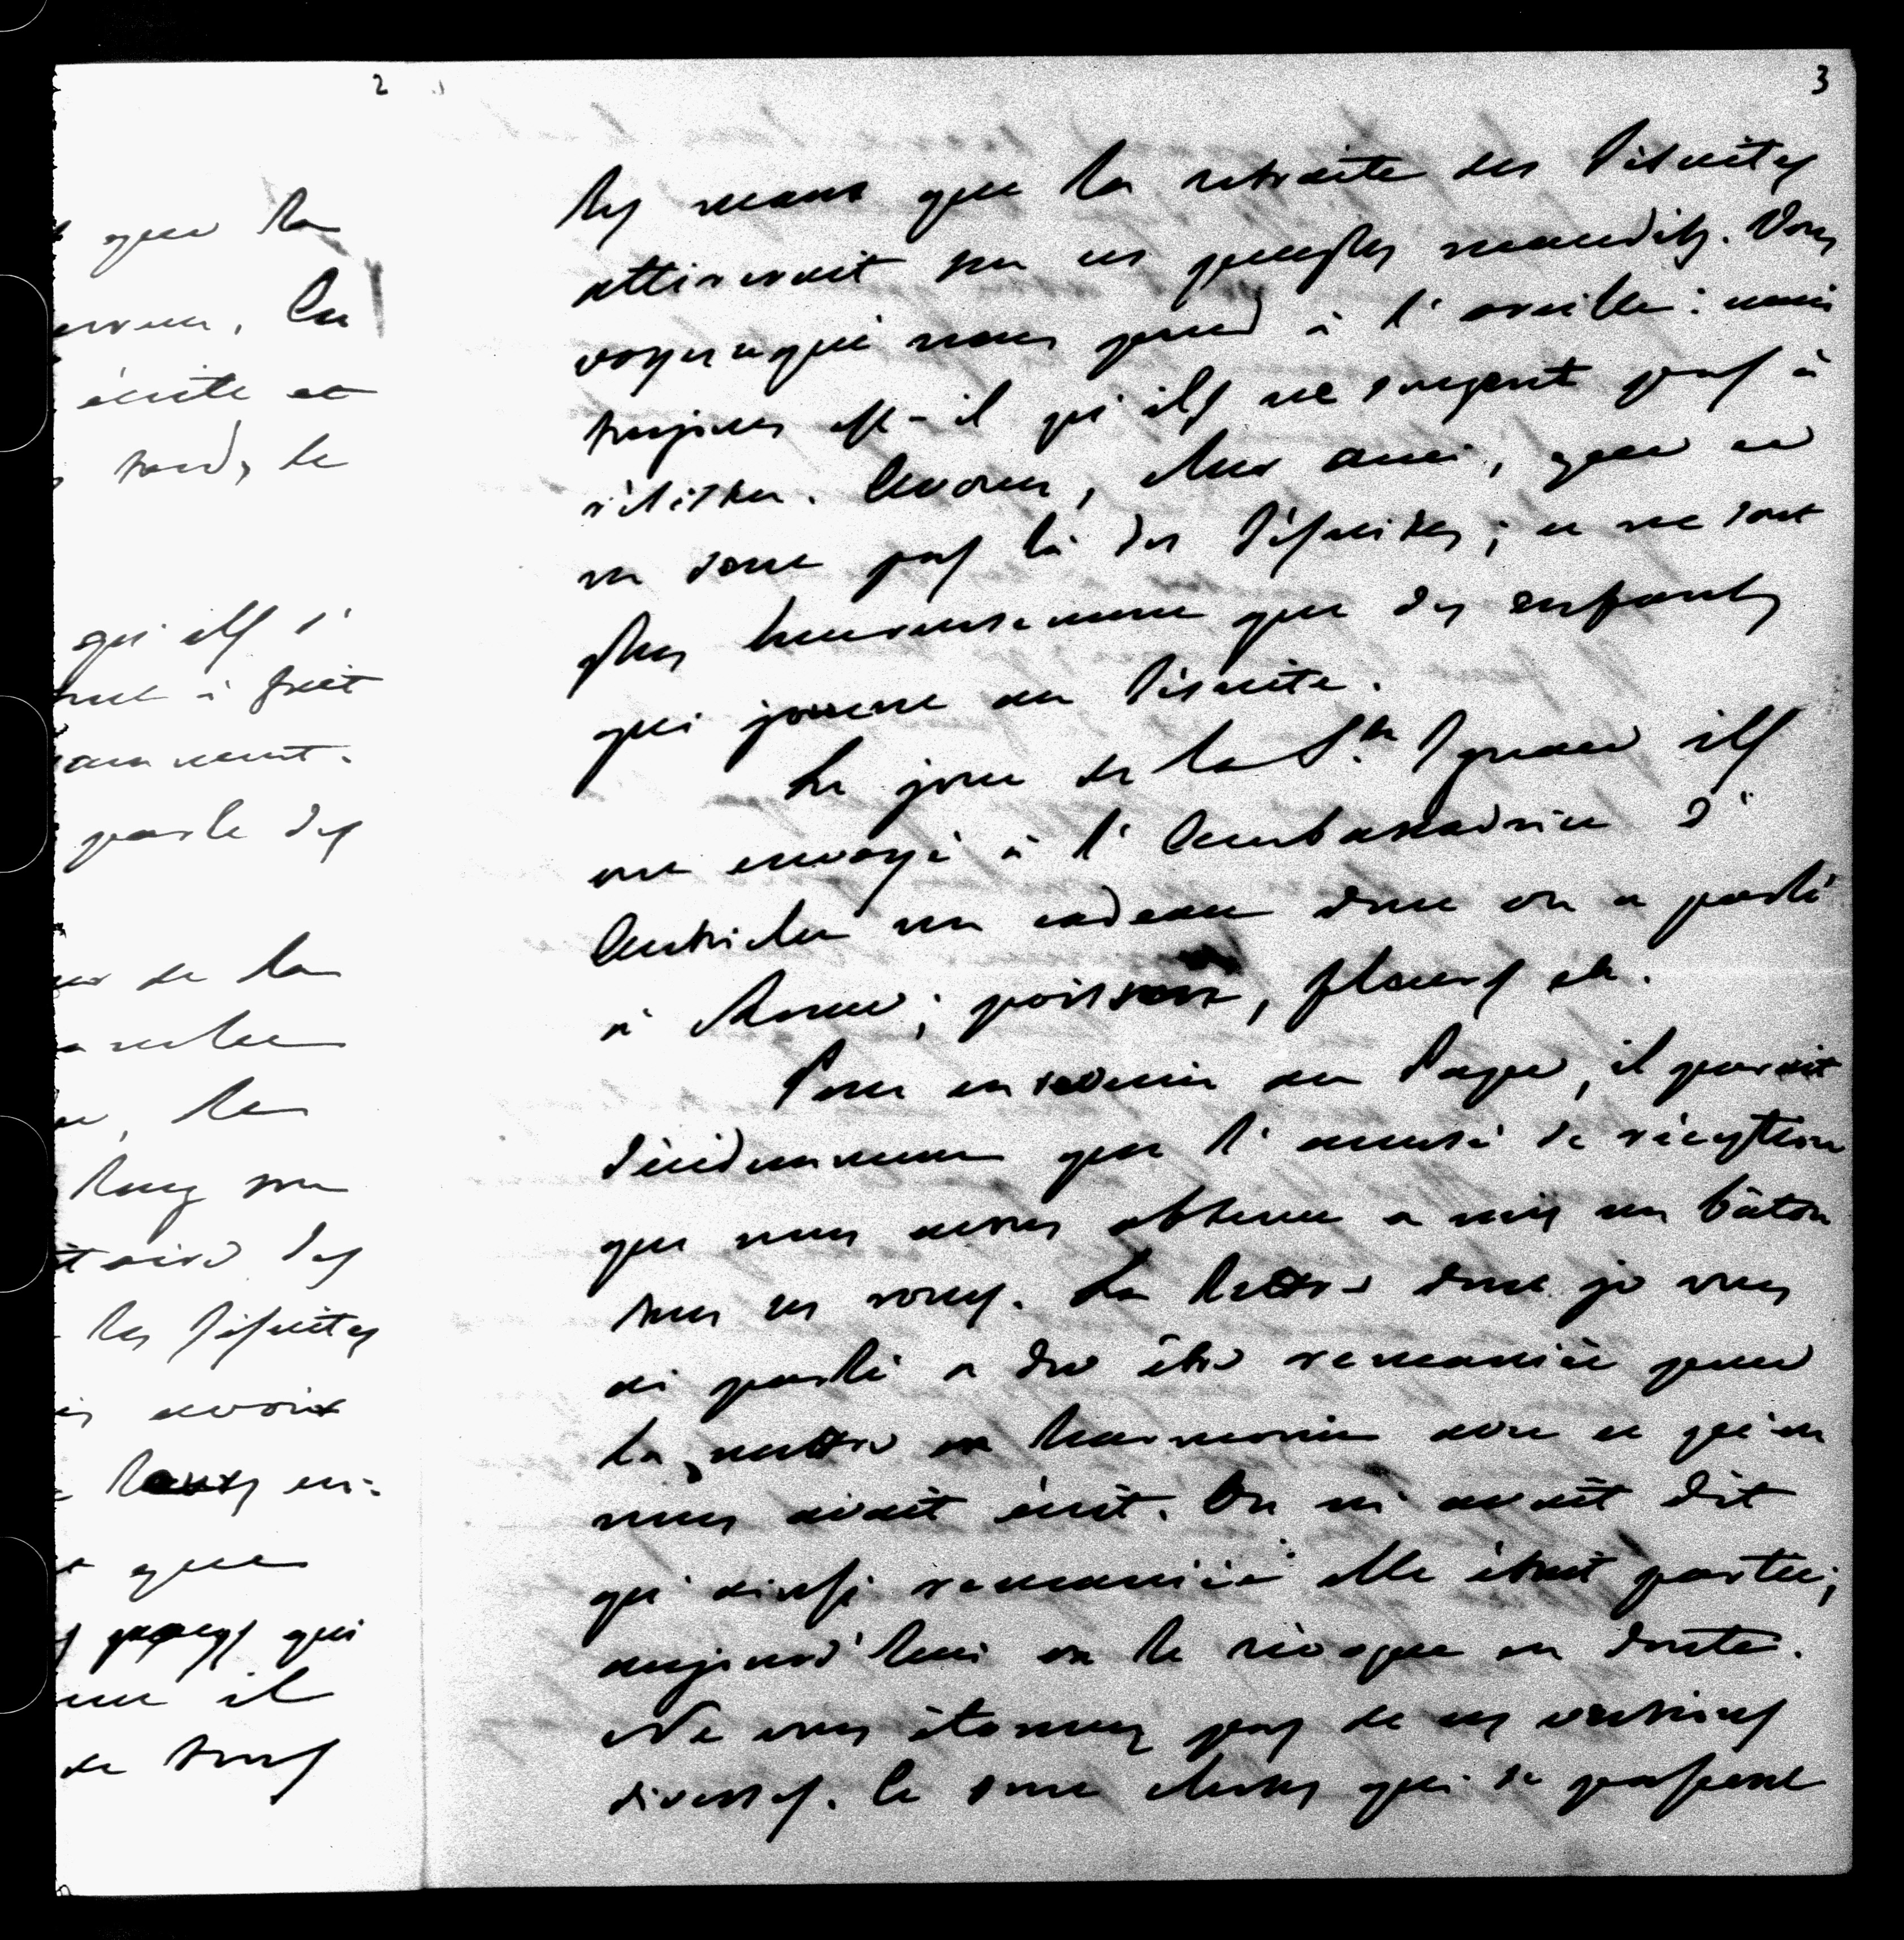 2
que la
écrite et
tard, le
qu'ils s'
à fait
parle des
de la
la
long sur
des
les Jésuites
avoir
que
pays qui
il
de tous
3
les maux que la retraite des Jésuites
attirerait sur ces peuples maudits. Vous
voyez ce qui nous pend à l'oreille : mais
toujours est-il qu'ils ne songent pas à
résister. Avouez, cher ami, que ce
ne sont pas là des Jésuites ; ce ne sont
plus heureusement que des enfants
qui jouent au Jésuite.
Le jour de la St. Ignace ils
ont envoyé à l'Ambassadrice d'
Autriche un cadeau dont on a parlé
à Rome ; poisson, fleurs etc.
Pour en revenir au Pape, il paroit
décidemment que l'accusé de réception
que nous avons obtenu a mis un bâton
dans les roues. La lettre dont je vous
ai parlé a du être remaniée pour
la mettre en harmonie avec ce qu'on
nous avait écrit. On m'avait dit
qu'ainsi remaniée elle était partie ;
aujourd'hui on le révoque en doute.
Ne vous étonnez pas de ces versions
diverses. Ce sont choses qui se passent